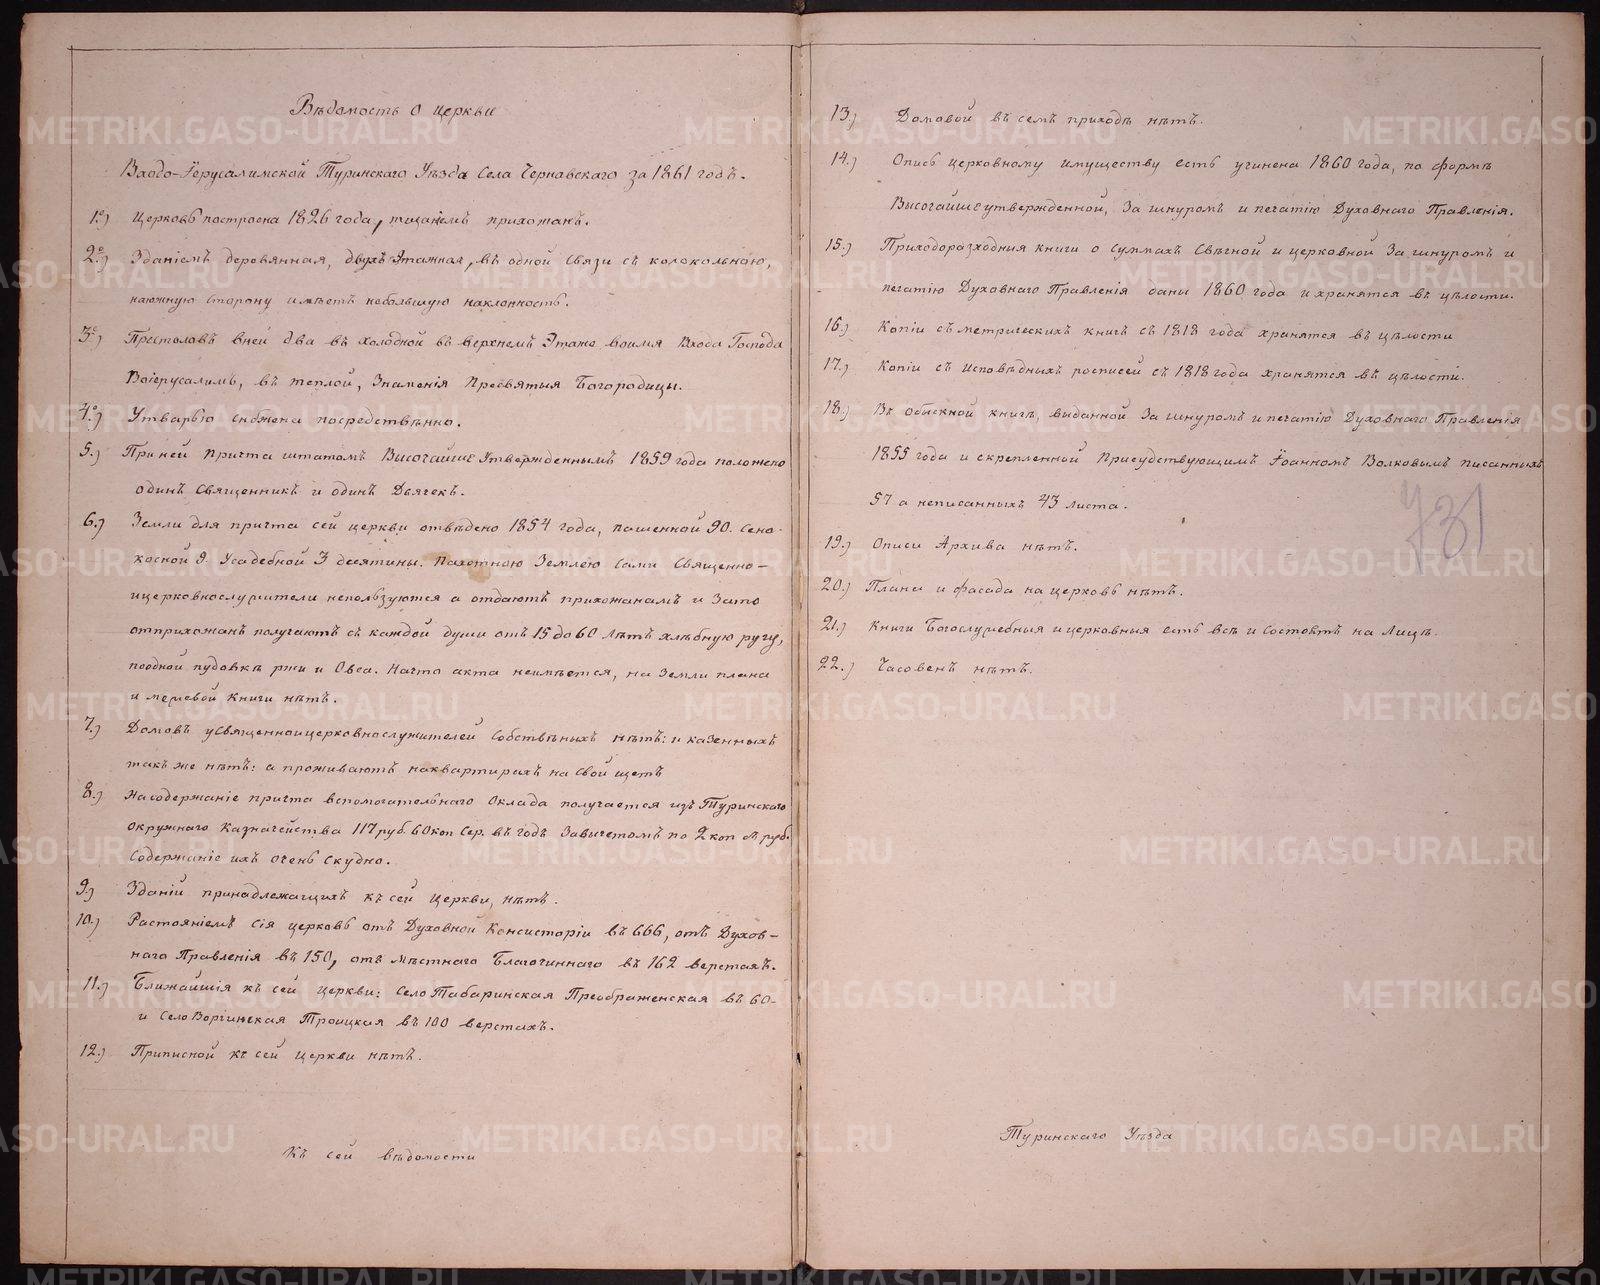 Вѣдомость о церкви
Входо-Іерусалимской Туринскаго Уѣзда Села Чернавскаго за 1861 годъ.
1е) Церковь построена 1826 года, тщаніемъ прихожанъ.
2е) Зданіемъ деревянная, двухъ Этажная, въ одной связи съ колокольною,
наюжную сторону имѣетъ небольшую наклонность.
3е) Престоловъ вней два въ холодной въ верхнемъ Этаже воимя Входа Господа
Воіерусалимъ, въ теплой, Знаменія Пресвятыя Богородицы.
4е) Утварью снбжена посредствѣнно.
5.) При ней причта штатомъ Высочайше Утвержденнымъ 1859 года положено
одинъ Священникъ и одинъ Дьячекъ.
6.) Земли для причта сей церкви отвѣдено 1854 года, пашенной 90. Сено-
косной 9. Усадебной 3 десятины. Пахотною Землею сами Священно-
ицерковнослужители непользуются а отдаютъ прихожанамъ и Зато
отприхожанъ получаютъ съ каждой души отъ 15 до 60 лѣтъ хлѣбную ругу,
поодной пудовкѣ ржи и Овса. Начто акта неимѣется, на Земли плана
и межевой книги нѣтъ.
7.) Домовъ усвященноицерковнослужителей собствѣныхъ нѣтъ: и казенныхъ
такъ же нѣтъ: а проживаютъ наквартирахъ на свой щетъ
8.) Насодержаніе причта вспомогательнаго Оклада получается изъ Туринскаго
Окружнаго Казначейства 117 руб. 60 коп Сер. въ годъ Завычетомъ по 2 коп съ руб.
Содержаніе ихъ очень скудно.
9.) Зданій принадлежащихъ къ сей церкви, нѣтъ.
10.) Растояніемъ сія церковь отъ Духовной Консисторіи въ 666, отъ Духов-
наго Правленія въ 150, отъ мѣстнаго Благочиннаго въ 162 верстахъ.
11.) Ближайшія къ сей церкви: село Табаринская Преображенская въ 60-
и село Воргинская Троицкая въ 100 верстахъ.
12.) Приписной къ сей церкви нѣтъ.
Къ сей вѣдомости
13.) Домовой въ семъ приходѣ нѣтъ.
14.) Опись церковному имуществу есть учинена 1860 года, по формѣ
Высочайше утвержденной, За шнуромъ и печатію Духовнаго Правленія.
15.) Приходоразходния книги о суммахъ Свѣчной и церковной За шнуромъ и
печатію Духовнаго Правленія даны 1860 года и хранятся въ цѣлости.
16.) Копіи съ метрическихъ книгъ съ 1818 года хранятся въ цѣлости
17.) Копіи съ исповѣдныхъ росписей съ 1818 года хранятся въ цѣлости.
18.) Въ обыскной книгѣ, выданной За шнуромъ и печатію Духовнаго Правленія
1855 года и скрепленной Присудствующимъ Іоанномъ Волковымъ писанныхъ
57 а неписанныхъ 43 листа.
731
19.) Описи Архива нѣтъ.
20.) Плана и фасада на церковь нѣтъ.
21.) Книги Богослужебныя ицерковныя есть всѣ и Состоятъ на Лицѣ.
22.) Часовенъ нѣтъ.
Туринскаго Уѣзда